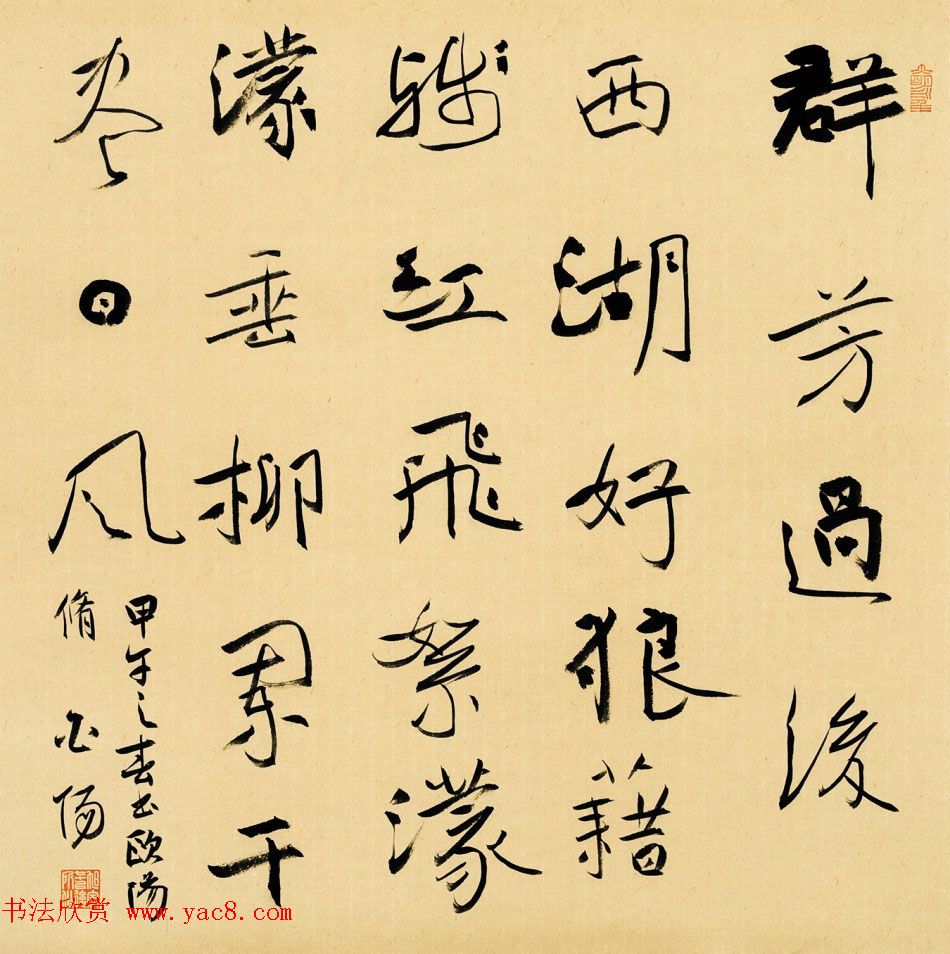 群芳過後
西湖好狼藉
殘紅飛絮濛
濛垂柳闌干
尽日风
甲午之春书歐陽
脩
书法欣赏 www.yac8.com